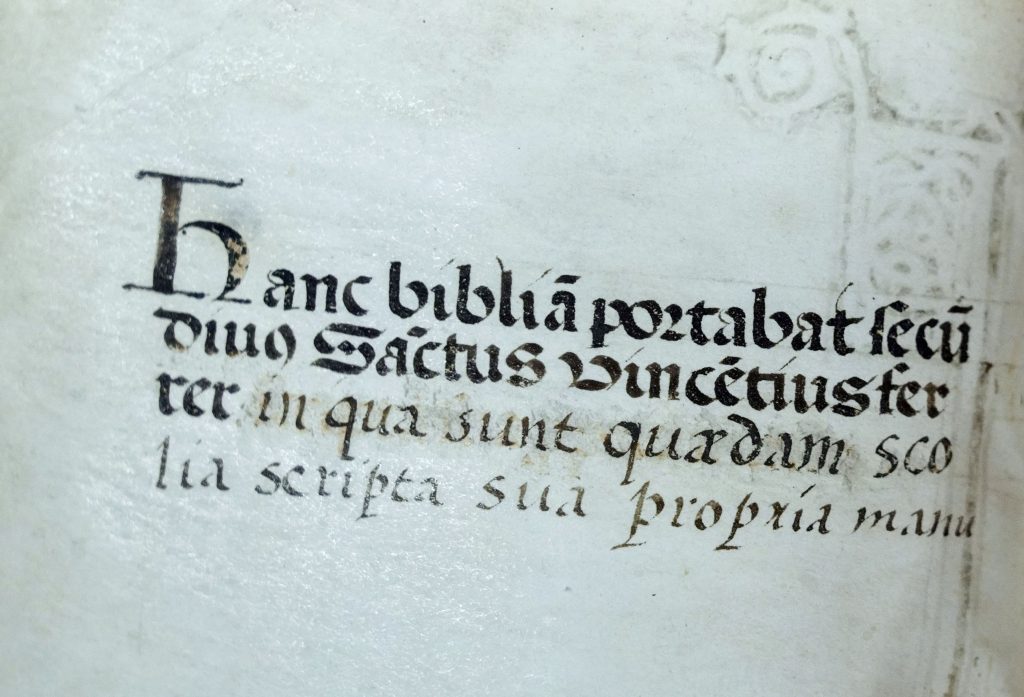 Hanc bibliā portabat secū
diuo Sāctus Vincētius fer
rer in qua sunt quædam sco
lia scripta sua propria manu